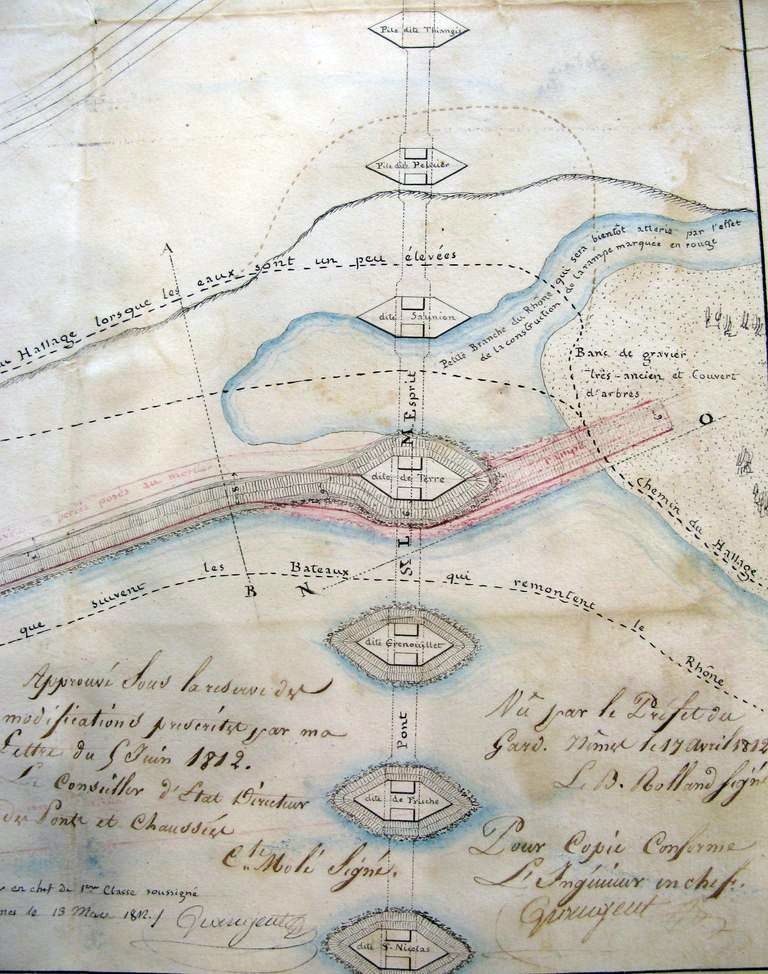 Pile dite Thiangis
Pile dite Peletier
A
au Hallage lorsque les eaux sont un peu élevées
Petite Branche du Rhône qui sera bientôt atterie par l'effet
de la construction de la rampe marquée en rouge
dite Saunion
Banc de gravier
très-ancien et Couvert
d'arbres
Pont St Esprit
M
O
dite de Terre
rampe
perrés posés au mortier
Chemin du Hallage
L
B
N
que suivent les Bateaux qui remontent le Rhône
dite Grenouillet
dite de Friche
dite St Nicolas
Approuvé sous la reserve des
modifications prescrites par ma
Lettre du 5 Juin 1812.
Le Conseiller d'Etat Directeur
des Ponts et Chaussées
Cte Molé Signé.
en chef de 1ere Classe soussigné
le 13 Mars 1812.
Vu par le Préfet du
Gard. Nîmes le 17 Avril 1812
Le B. Rolland Signé
Pour Copie Conforme
L'Ingénieur en chef.